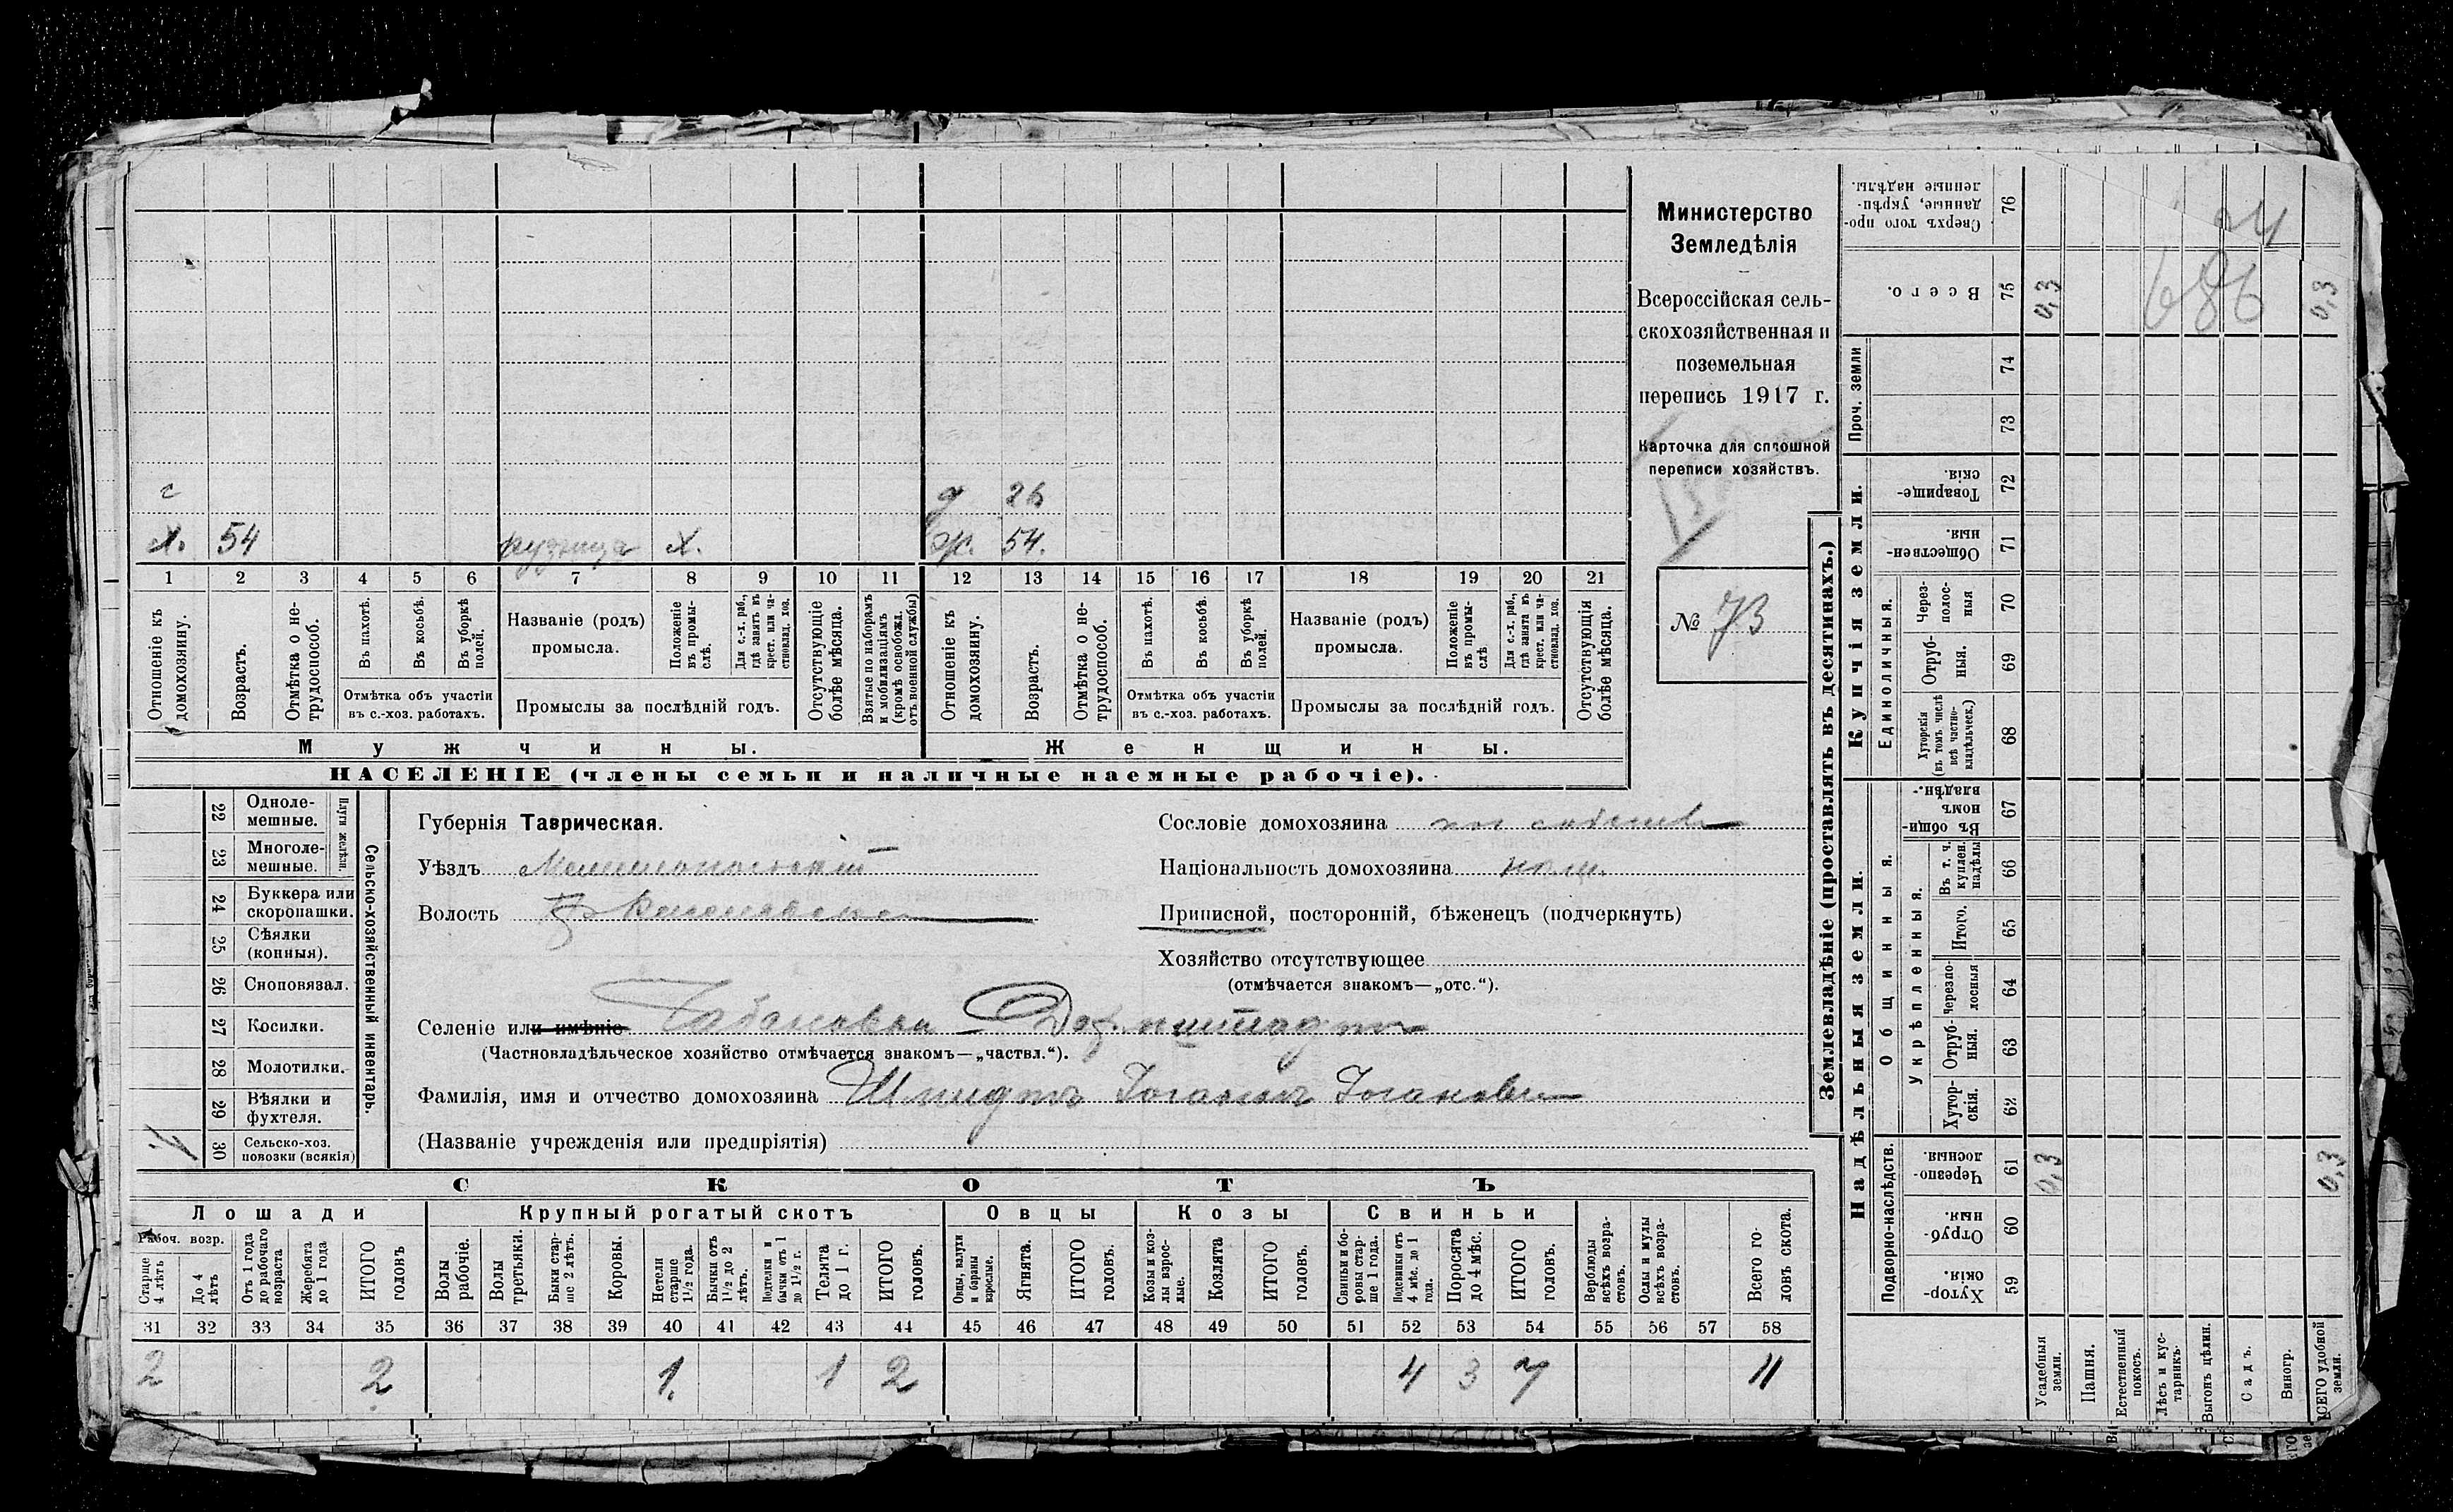 Министерство
Земледѣлія
Всероссійская сель-
скохозяйственная и
поземельная
перепись 1917 г.
Карточка для сплошной
переписи хозяйствъ.
№ 73
с
д 26
х. 54 кузница х. ж. 54.
1 2 3 4 5 6 7 8 9 10 11 12 13 14 15 16 17 18 19 20 21
Отношеніе къ домохозяину.
Возрастъ.
Отмѣтка о не-трудоспособ.
Въ пахотѣ.
Въ косьбѣ.
Въ уборкѣ полей.
Отмѣтка объ участіи
въ с.-хоз. работахъ.
Названіе (родъ)
промысла.
Положеніе въ промы-слѣ.
Для с.-х. раб., гдѣ занятъ въ крест. или ча-стновлад. хоз.
Промыслы за послѣдній годъ.
Отсутствующіе болѣе мѣсяца.
Взятые по наборамъ и мобилизаціямъ (кромѣ освобожд. отъ военной службы)
Отношеніе къ домохозяину.
Возрастъ.
Отмѣтка о не-трудоспособ.
Въ пахотѣ.
Въ косьбѣ.
Въ уборкѣ полей.
Отмѣтка объ участіи
въ с.-хоз. работахъ.
Названіе (родъ)
промысла.
Положеніе въ промы-слѣ
Для с.-х. раб., гдѣ занята въ крест. или ча-стновлад. хоз.
Промыслы за послѣдній годъ.
Отсутствующія болѣе мѣсяца.
Мужчины. Женщины.
НАСЕЛЕНІЕ (члены семьи и наличные наемные рабочіе).
Сельско-хозяйственный инвентарь.
Плуги желѣзн.
22 Одноле-мешные.
23 Многоле-мешные.
24 Буккера или скоропашки.
25 Сѣялки (конныя).
26 Сноповязал.
27 Косилки.
28 Молотилки.
29 Вѣялки и фухтеля.
30 Сельско-хоз. повозки (всякія)
Губернія Таврическая.
Уѣздъ Мелитопольскій
Волость
Сословіе домохозяина
Національность домохозяина
Приписной, посторонній, бѣженецъ (подчеркнуть)
Хозяйство отсутствующее
(отмѣчается знакомъ—„отс.“).
Селеніе или имѣніе
(Частновладѣльческое хозяйство отмѣчается знакомъ—„частвл.“).
Фамилія, имя и отчество домохозяина Шмидтъ Іоганнъ
(Названіе учрежденія или предпріятія)
СКОТЪ
Лошади Крупный рогатый скотъ Овцы Козы Свиньи
Рабоч. возр.
Старше 4 лѣтъ
До 4 лѣтъ
Отъ 1 года до рабочаго возраста
Жеребята до 1 года
ИТОГО головъ
Волы рабочіе.
Волы третьяки.
Быки стар-ше 2 лѣтъ.
Коровы.
Нетели старше 1½ года.
Бычки отъ 1½ до 2 лѣтъ.
Подтелки и бычки отъ 1 до 1½ г.
Телята до 1 г.
ИТОГО головъ.
Овцы, валухи и бараны взрослые.
Ягнята.
ИТОГО головъ.
Козы и коз-лы взрос-лые.
Козлята
ИТОГО головъ.
Свиньи и бо-ровы стар-ше 1 года.
Подсвинки отъ 4 мѣс. до 1 года.
Поросята до 4 мѣс.
ИТОГО головъ.
Верблюды всѣхъ возра-стовъ.
Ослы и мулы всѣхъ возра-стовъ.
Всего го-ловъ скота.
31 32 33 34 35 36 37 38 39 40 41 42 43 44 45 46 47 48 49 50 51 52 53 54 55 56 57 58
2 2 1. 1 2 4 3 7 11
Землевладѣніе (проставлять въ десятинахъ.)
Купчія земли.
Надѣльныя земли.
Проч. земли
Единоличныя.
Общинныя.
Укрѣпленныя.
Подворно-наслѣдств.
76 Сверхъ того про-данные, укрѣп-ленные надѣлы.
75 Всего. 0,3 0,3
24
686
74
73
72 Товарище-скія.
71 Обществен-ныя.
70 Через-полос-ныя
69 Отруб-ныя.
68 Хуторскія (въ томъ числѣ всѣ частно-владѣльческ.)
67 Въ общин-номъ владѣн.
66 Въ т. ч. куплен. надѣлы
65 Итого.
64 Черезпо-лосныя
63 Отруб-ныя.
62 Хутор-скія.
61 Черезпо-лосныя. 0,3 0,3
60 Отруб-ныя.
59 Хутор-скія.
Усадебныя земли.
Пашня.
Естественный покосъ.
Лѣсъ и кус-тарникъ.
Выгонъ цѣлин.
Садъ.
Виногр.
ВСЕГО удобной земли.